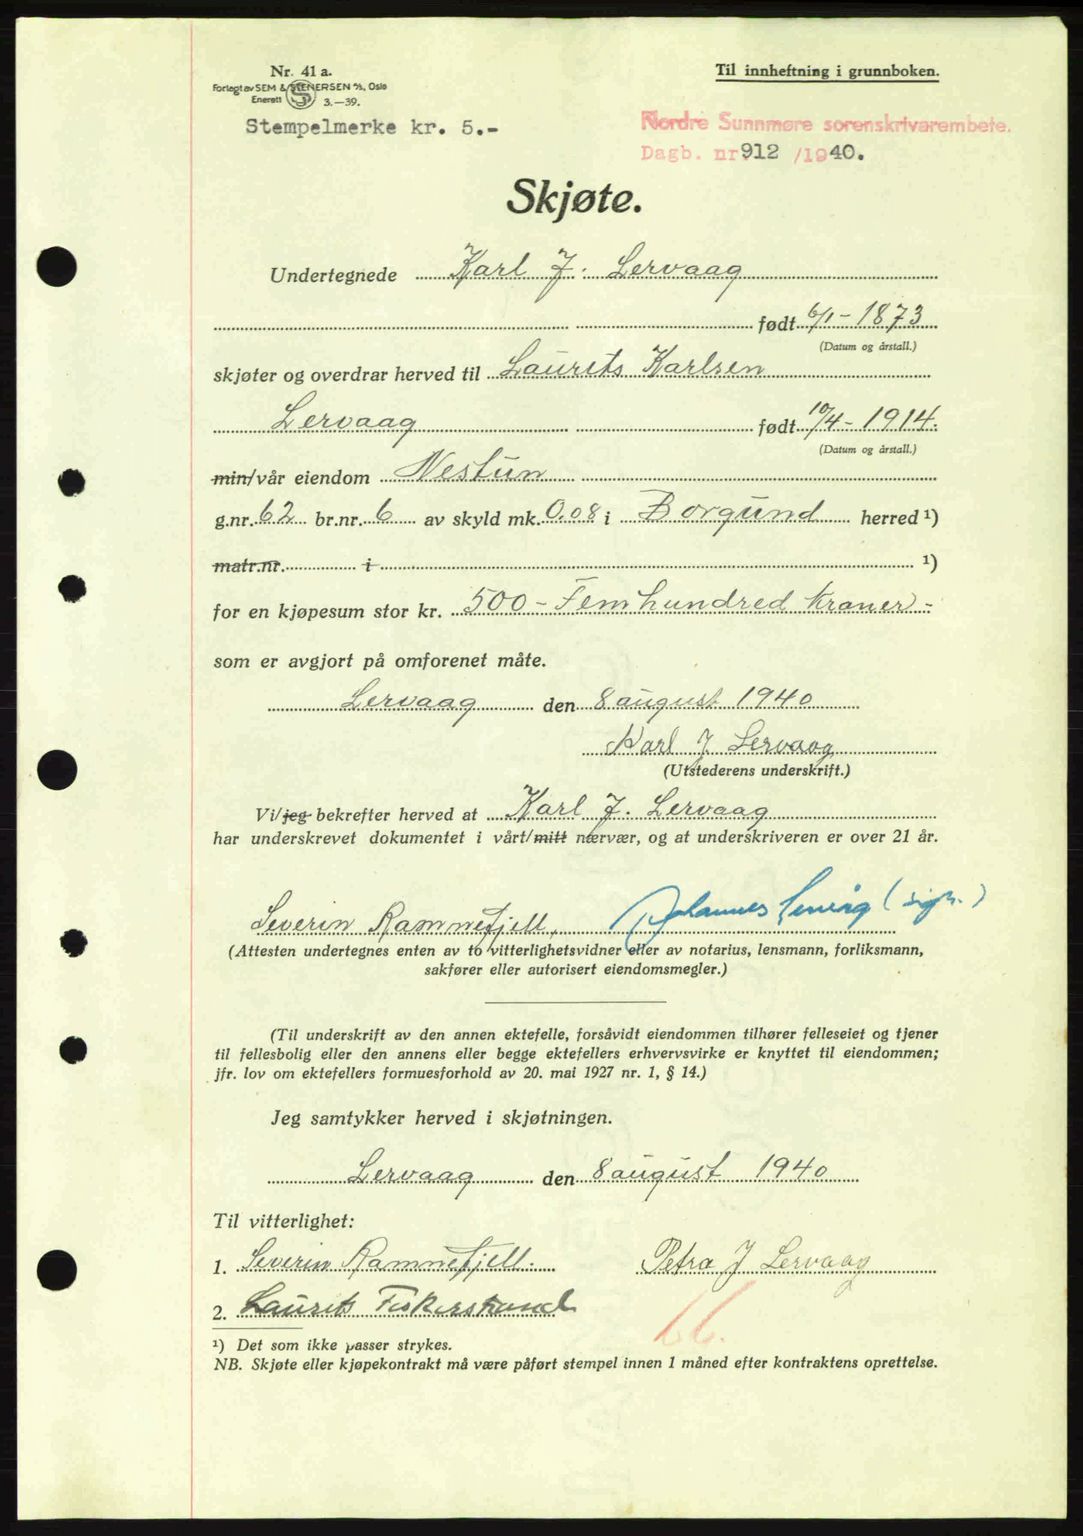 Nr. 41 a.
Forlagt av SEM & STENERSEN A/S, Oslo
Enerett 3.—39.
Stempelmerke kr. 5.-
Til innheftning i grunnboken.
Nordre Sunnmøre sorenskrivarembete.
Dagb. nr. 912 /1940.
Skjøte.
Undertegnede Karl J. Lervaag
født 6/1 - 1873
(Datum og årstall.)
skjøter og overdrar herved til Laurits Karlsen
Lervaag født 10/4 - 1914.
(Datum og årstall.)
min/vår eiendom Nestun
g.nr. 62 br.nr. 6 av skyld mk. 0.08 i Borgund herred ¹)
matr.nr. i ¹)
for en kjøpesum stor kr. 500 - Femhundred kroner -
som er avgjort på omforenet måte.
Lervaag den 8 august 1940
Karl J Lervaag
(Utstederens underskrift.)
Vi/jeg bekrefter herved at Karl J. Lervaag
har underskrevet dokumentet i vårt/mitt nærvær, og at underskriveren er over 21 år.
Severin Ramnefjell, Johannes (sign.)
(Attesten undertegnes enten av to vitterlighetsvidner eller av notarius, lensmann, forliksmann,
sakfører eller autorisert eiendomsmegler.)
(Til underskrift av den annen ektefelle, forsåvidt eiendommen tilhører felleseiet og tjener
til fellesbolig eller den annens eller begge ektefellers erhvervsvirke er knyttet til eiendommen;
jfr. lov om ektefellers formuesforhold av 20. mai 1927 nr. 1, § 14.)
Jeg samtykker herved i skjøtningen.
Lervaag den 8 august 1940
Til vitterlighet:
1. Severin Ramnefjell. Petra J Lervaag
2. Laurits Fiskerstrand
66.
¹) Det som ikke passer strykes.
NB. Skjøte eller kjøpekontrakt må være påført stempel innen 1 måned efter kontraktens oprettelse.